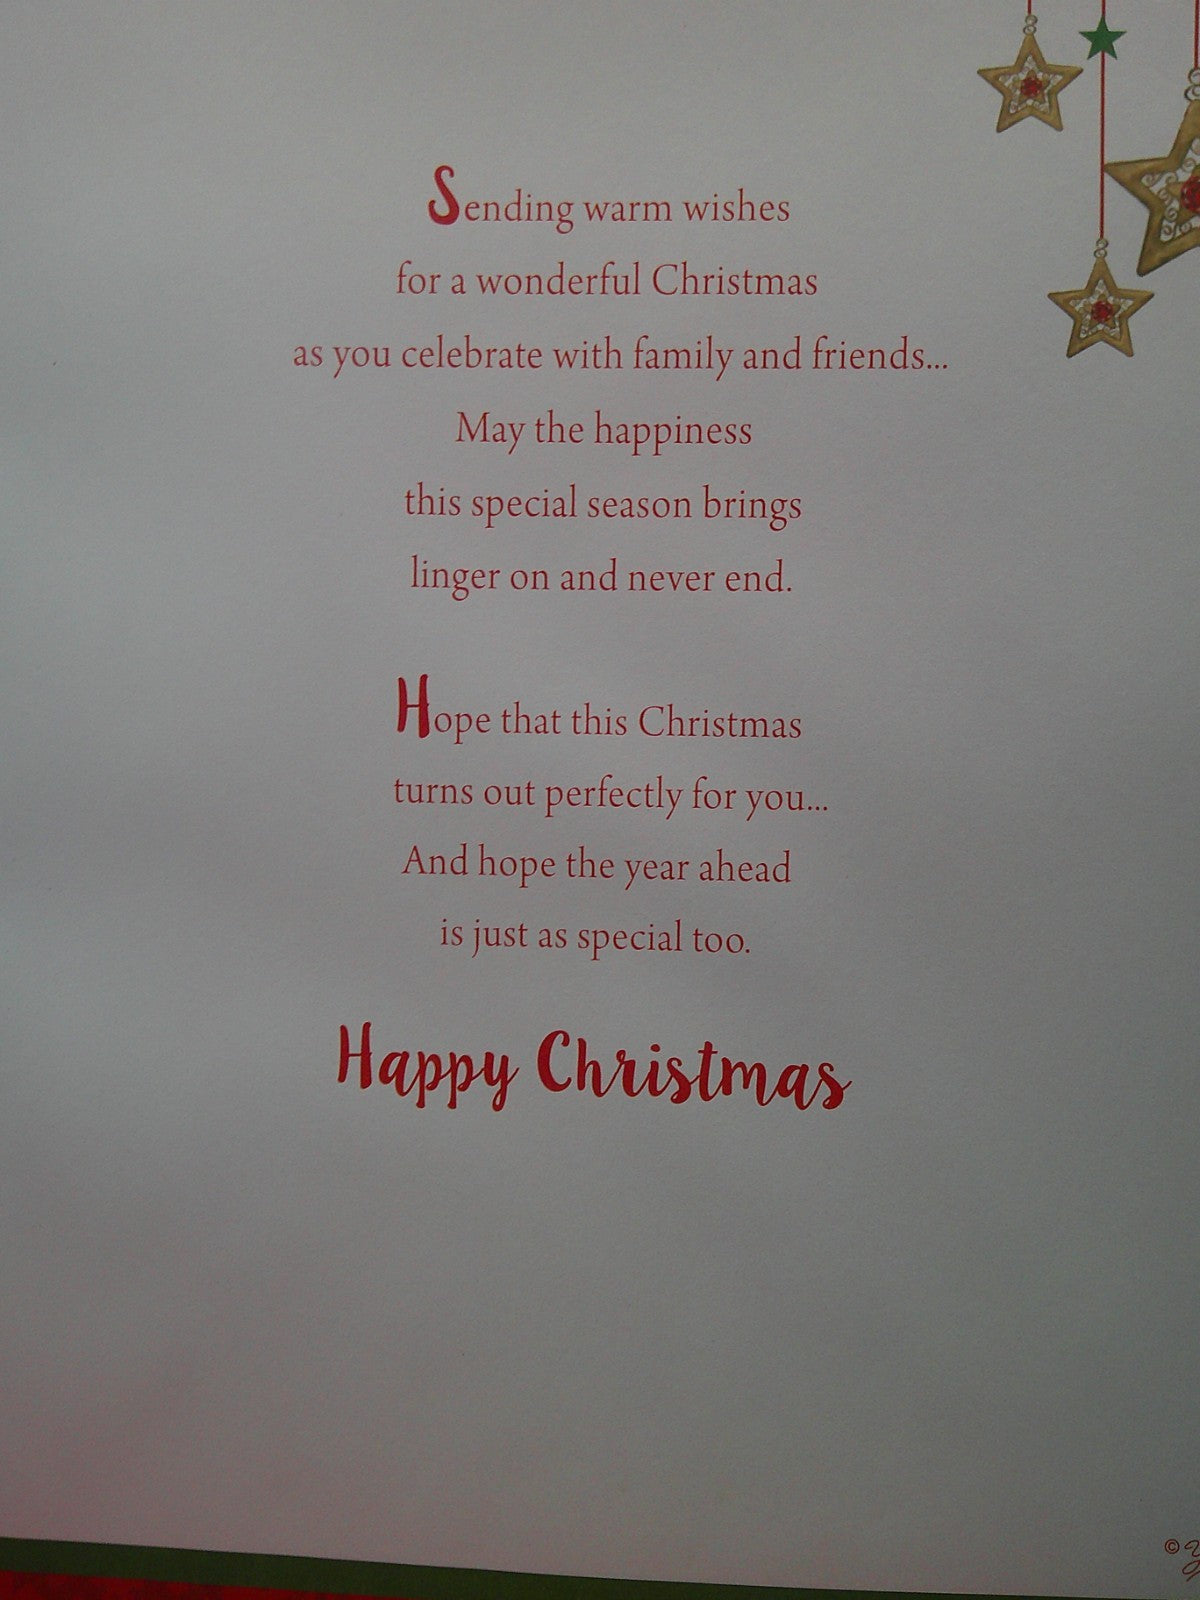 Sending warm wishes
for a wonderful Christmas
as you celebrate with family and friends...
May the happiness
this special season brings
linger on and never end.
Hope that this Christmas
turns out perfectly for you...
And hope the year ahead
is just as special too.
Happy Christmas
©